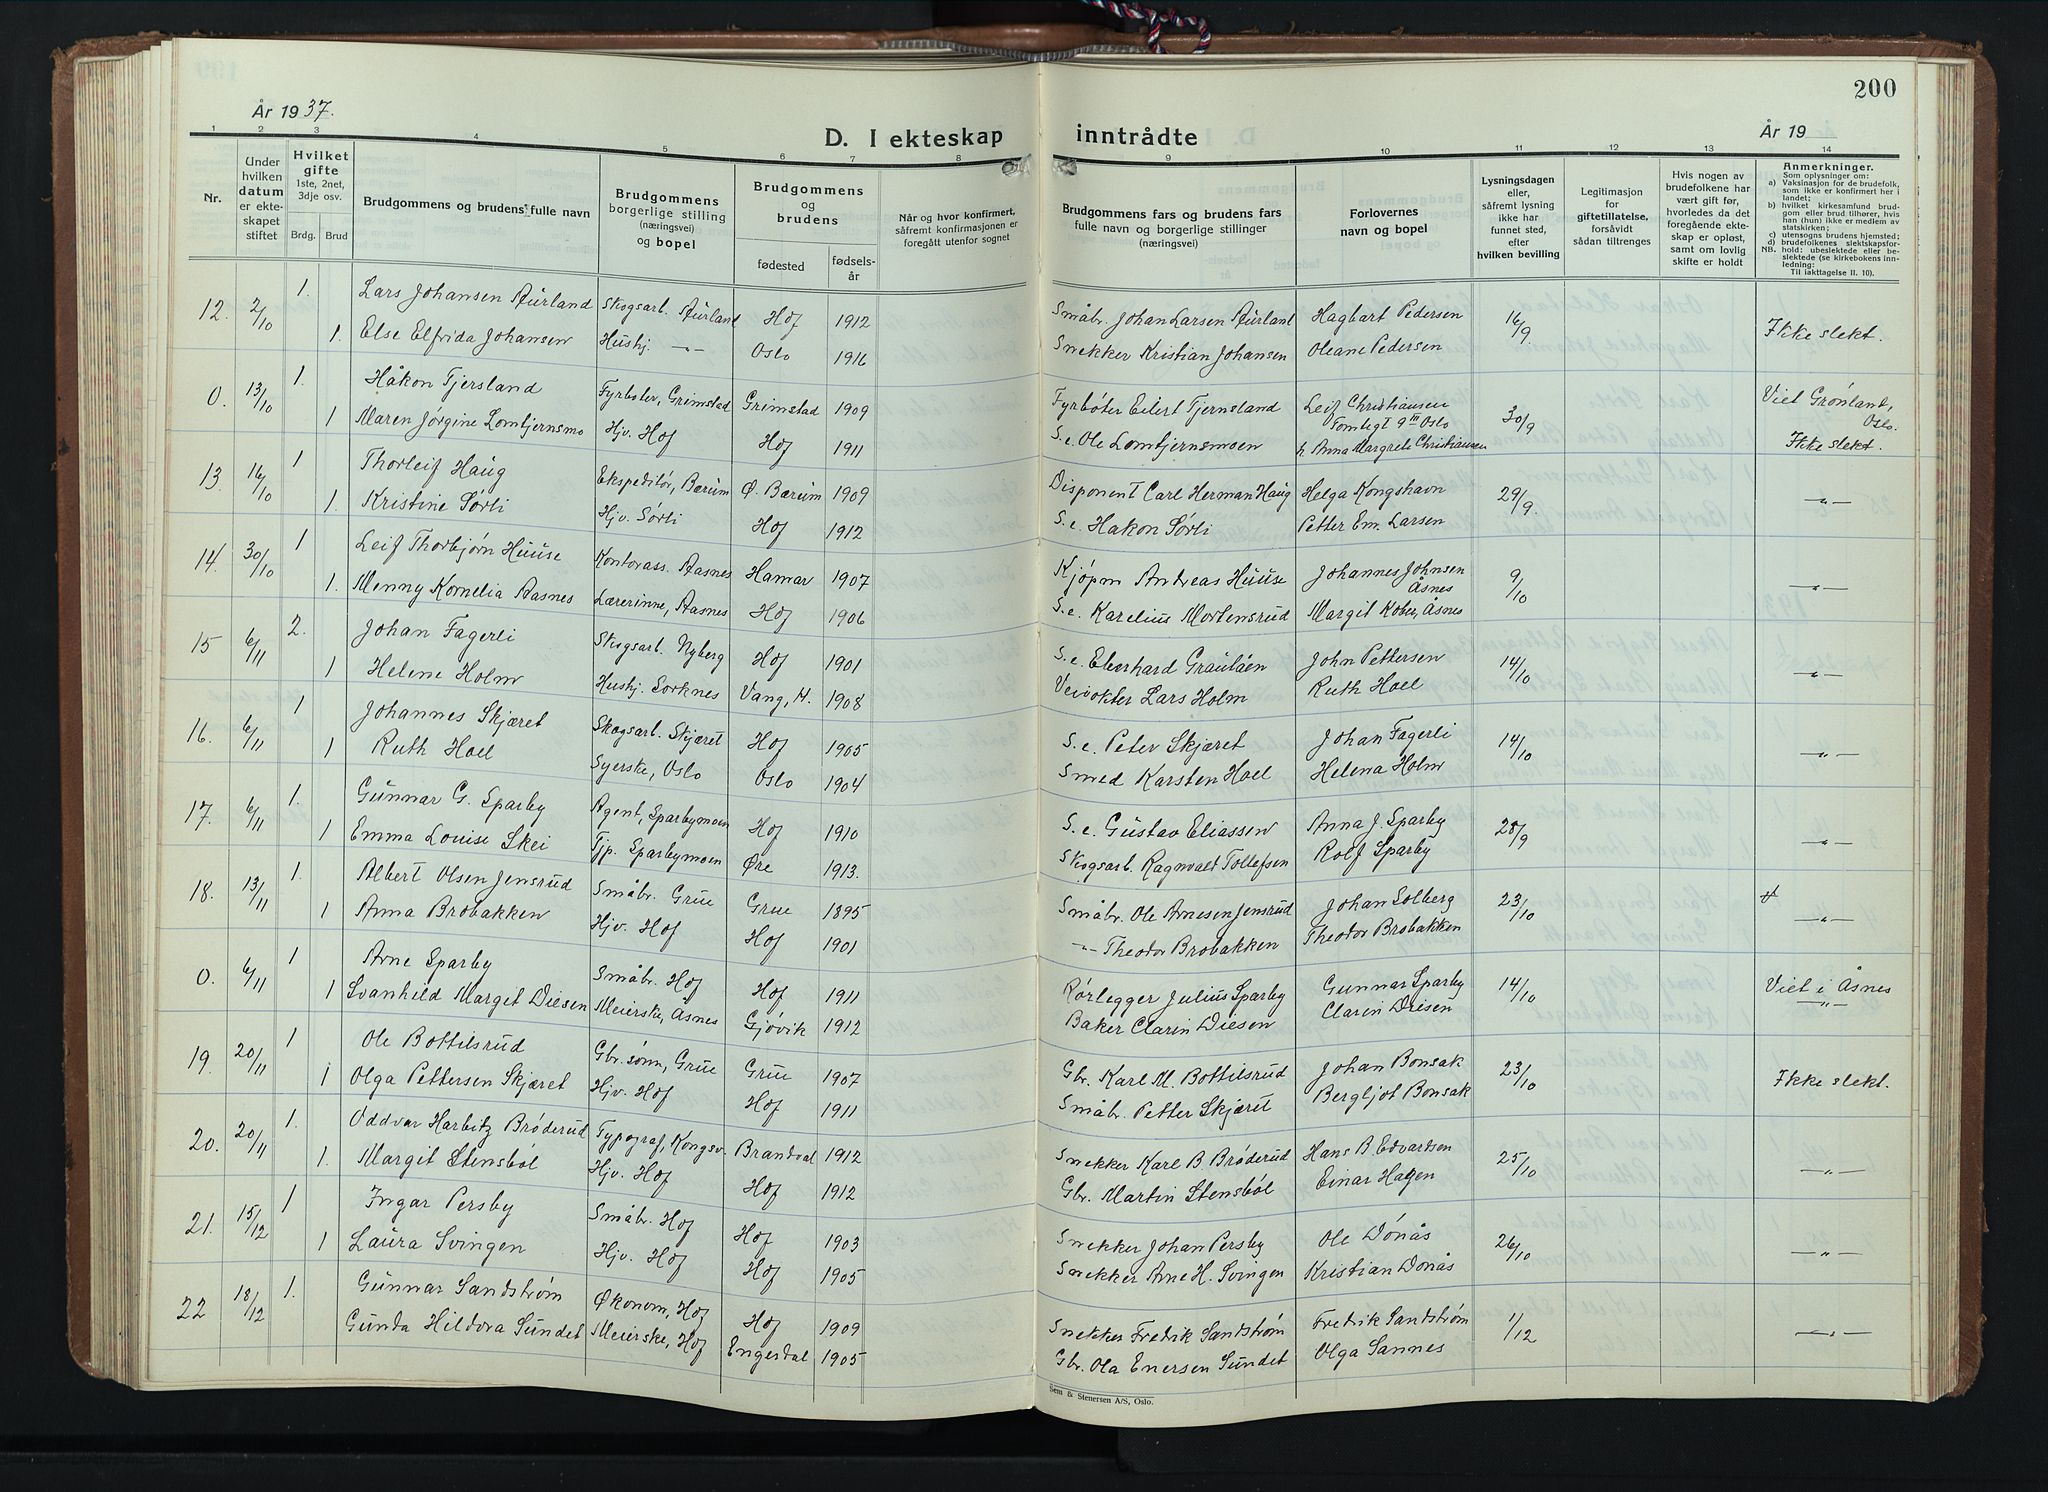 200
År 1937.
År 19
D. I ekteskap inntrådte
1 2 3 4 5 6 7 8 9 10 11 12 13 14
Nr.
Under hvilken datum er ekteskapet stiftet
Hvilket gifte 1ste, 2net, 3dje osv.
Brdg. Brud
Brudgommens og brudens fulle navn
Brudgommens borgerlige stilling (næringsvei) og bopel
Brudgommens og brudens
fødested
fødsels-år
Når og hvor konfirmert, såfremt konfirmasjonen er foregått utenfor sognet
Brudgommens fars og brudens fars fulle navn og borgerlige stillinger (næringsvei)
Forlovernes navn og bopel
Lysningsdagen eller, såfremt lysning ikke har funnet sted, efter hvilken bevilling
Legitimasjon for giftetillatelse, forsåvidt sådan tiltrenges
Hvis nogen av brudefolkene har vært gift før, hvorledes da det foregående ekteskap er opløst, samt om lovlig skifte er holdt
Anmerkninger.
Som oplysninger om:
a) Vaksinasjon for de brudefolk, som ikke er konfirmert her i landet;
b) hvilket kirkesamfund brudgom eller brud tilhører, hvis han (hun) ikke er medlem av statskirken;
c) utensogns brudens hjemsted;
d) brudefolkenes slektskapsforhold: ubeslektede eller beslektede (se kirkebokens innledning:
NB.
Til iakttagelse II. 10).
12. 2/10 1. Lars Johansen Aurland Skogsarb. Aurland Hof 1912 Småbr. Johan Larsen Aurland Hagbart Pedersen 16/9 Ikke slekt.
1. Else Elfrida Johansen Hushj. -"- Oslo 1916 Snekker Kristian Johansen Oleane Pedersen
0. 13/10 1. Håkon Tjersland Fyrbøter, Grimstad Grimstad 1909 Fyrbøter Eilert Tjernsland Leif Christiansen Tomtegt 9 III Oslo 30/9 Viet Grønland, Oslo.
1 Maren Jørgine Lomtjernsmo Hjv. Hof Hof 1911 S.e. Ole Lomtjernsmoen h. Anna Margrete Christiansen Ikke slekt.
13. 16/10 1 Thorleif Haug Ekspeditør, Bærum Ø. Bærum 1909 Disponent Carl Herman Haug Helga Kongshavn 29/9. -"-
1. Kristine Sørli Hjv. Sørli Hof 1912 S.e. Håkon Sørli Petter Em. Larsen
14. 30/10 1 Leif Thorbjørn Huuse Kontorass. Aasnes Hamar 1907 Kjøpm Andreas Huuse Johannes Johnsen Åsnes 9/10 -"-
1. Menny Kornelia Aasnes Lærerinne, Aasnes Hof 1906 S.e. Karelius Mortensrud Margit Kober, Åsnes
15 6/11 2. Johan Fagerli Skogsarb. Nyberg Hof 1901 S.e. Eberhard Graulåen John Pettersen 14/10 -"-
1 Helene Holm Hushj. Sorknes Vang, H. 1908 Veivokter Lars Holm Ruth Hoel
16. 6/11 1 Johannes Skjæret Skogsarb. Skjæret Hof 1905 S.e. Peter Skjæret Johan Fagerli 14/10 -"-
1 Ruth Hoel Syerske, Oslo Oslo 1904 Smed Karsten Hoel Helena Holm
17. 6/11 1. Gunnar G. Sparby Agent, Sparbymoen Hof 1910 S.e. Gustav Eliassen Anna J. Sparby 28/9 -"-
1 Emma Louise Skei Tjp. Sparbymoen Øre 1913. Skogsarb. Ragnvald Tollefsen Rolf Sparby
18. 13/11 1. Albert Olsen Jensrud Småbr. Grue Grue 1895 Småbr. Ole Arnesen Jensrud Johan Solberg 23/10 -"-
1 Anna Brobakken Hjv. Hof Hof 1901 -"- Theodor Brobakken Theodor Brobakken
0. 6/11 1 Arne Sparby Småbr. Hof Hof 1911 Rørlegger Julius Sparby Gunnar Sparby 14/10 Viet i Åsnes
1 Svanhild Margit Diesen Meierske, Åsnes Gjøvik 1912 Baker Clarin Diesen Clarin Diesen -"-
19. 20/11 1 Ole Bottilsrud Gbr. sønn, Grue Grue 1907 Gbr. Karl M. Bottilsrud Johan Bonsak 23/10 Ikke slekt.
1 Olga Pettersen Skjæret Hjv. Hof Hof 1911 Småbr. Petter Skjæret Bergljot Bonsak
20. 20/11 1. Oddvar Harbitz Brøderud Typograf, Kongsv. Brandval 1912 Snekker Karl B. Brøderud Hans B. Edvardsen 25/10 -"-
1. Margit Stensbøl Hjv. Hof Hof 1912 Gbr. Martin Stensbøl Einar Hagen
21. 15/12 1 Ingar Persby Småbr. Hof Hof 1903 Snekker Johan Persby Ole Dónås 26/10 -"-
1 Laura Svingen Hjv. Hof Hof 1905 Snekker Arne H. Svingen Kristian Dónås
22 18/12 1. Gunnar Sandstrøm Økonom, Hof Hof 1909 Snekker Fredrik Sandstrøm Fredrik Sandstrøm 1/12 -"-
Gunda Hildora Sundet Meierske, Hof Engerdal 1905 Gbr. Ola Enersen Sundet Olga Sannes
Sem & Stenersen A/S, Oslo.